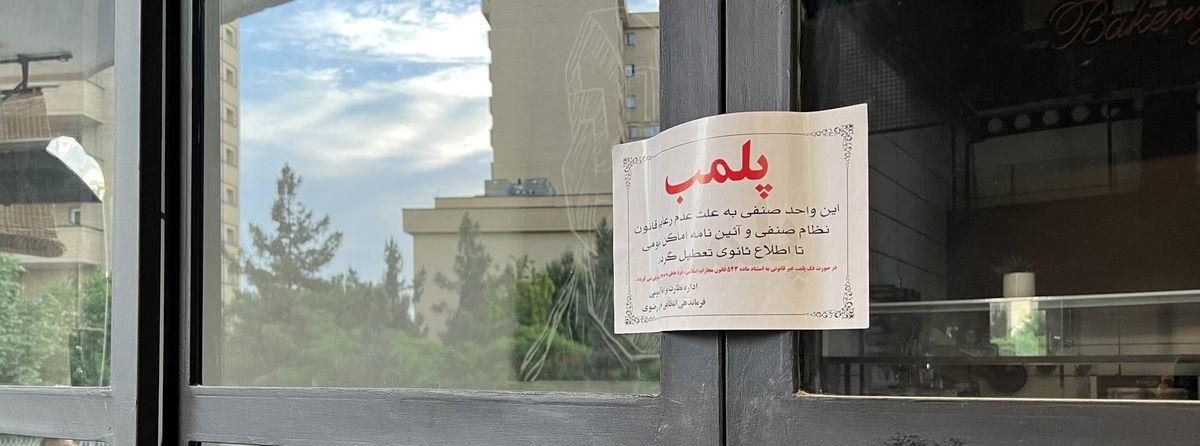 Bakery
پلمب
این واحد صنفی به علت عدم قانون
نظام صنفی و آئین نامه اماکن
تا اطلاع ثانوی تعطیل
در صورت فک پلمب غیر قانونی به استناد ماده ۵۴۳ قانون مجازات اسلامی می گردد
اداره نظارت بر
فرماندهی انتظامی رضوی